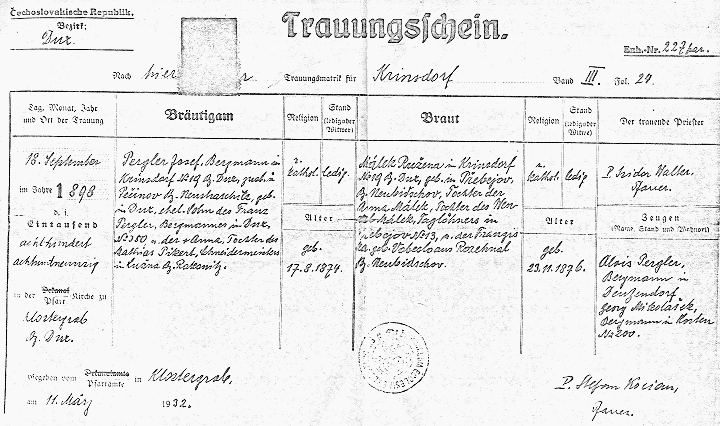 Čechoslovakische Republik.
Bezirk:
Dux.
Trauungsschein.
Exh.-Nr. 227 par.
Nach hier
Trauungsmatrik für Krinsdorf Band III. Fol. 24
Tag, Monat, Jahr
und Ort der Trauung
Bräutigam
Religion
Stand
(ledig oder
Witwer)
Braut
Religion
Stand
(ledig oder
Witwe)
Der trauende Priester
18. September
im Jahre 1898
d. i.
Eintausend
achthundert
achtundneunzig
in der Dekanal
Pfarr- Kirche zu
Klostergrab
B. Dux.
Pergler Josef, Bergmann in
Krinsdorf No 19 B. Dux, zust. n.
B. geb.
in Dux, ehel. Sohn des Franz
Pergler, Bergmannes in Dux,
No 380 u. der Anna, Tochter des
Mathias Pikert, Schneidermeisters
in B. Rakonitz.
kathol. ledig.
Alter
geb.
17.8.1874.
Málek Růžena in Krinsdorf
No 19 B. Dux, geb. in Třebejov,
B. Neubidschov, Tochter der
Anna Málek, Tochter des
Málek, Taglöhners in
Třebejov No 13, u. der
geb.
B. Neubidschov.
kathol. ledig
Alter
geb.
23.11.1876.
P. Isidor Walter,
Pfarrer.
Zeugen
(Name, Stand und Wohnort)
Alois Pergler,
Bergmann in
Georg Mikolášek,
Bergmann in Kosten
No 200.
Gegeben vom Dekanalamte
Pfarramte in Klostergrab,
am 11. März 1932.
P. Stefan Kocian,
Pfarrer.